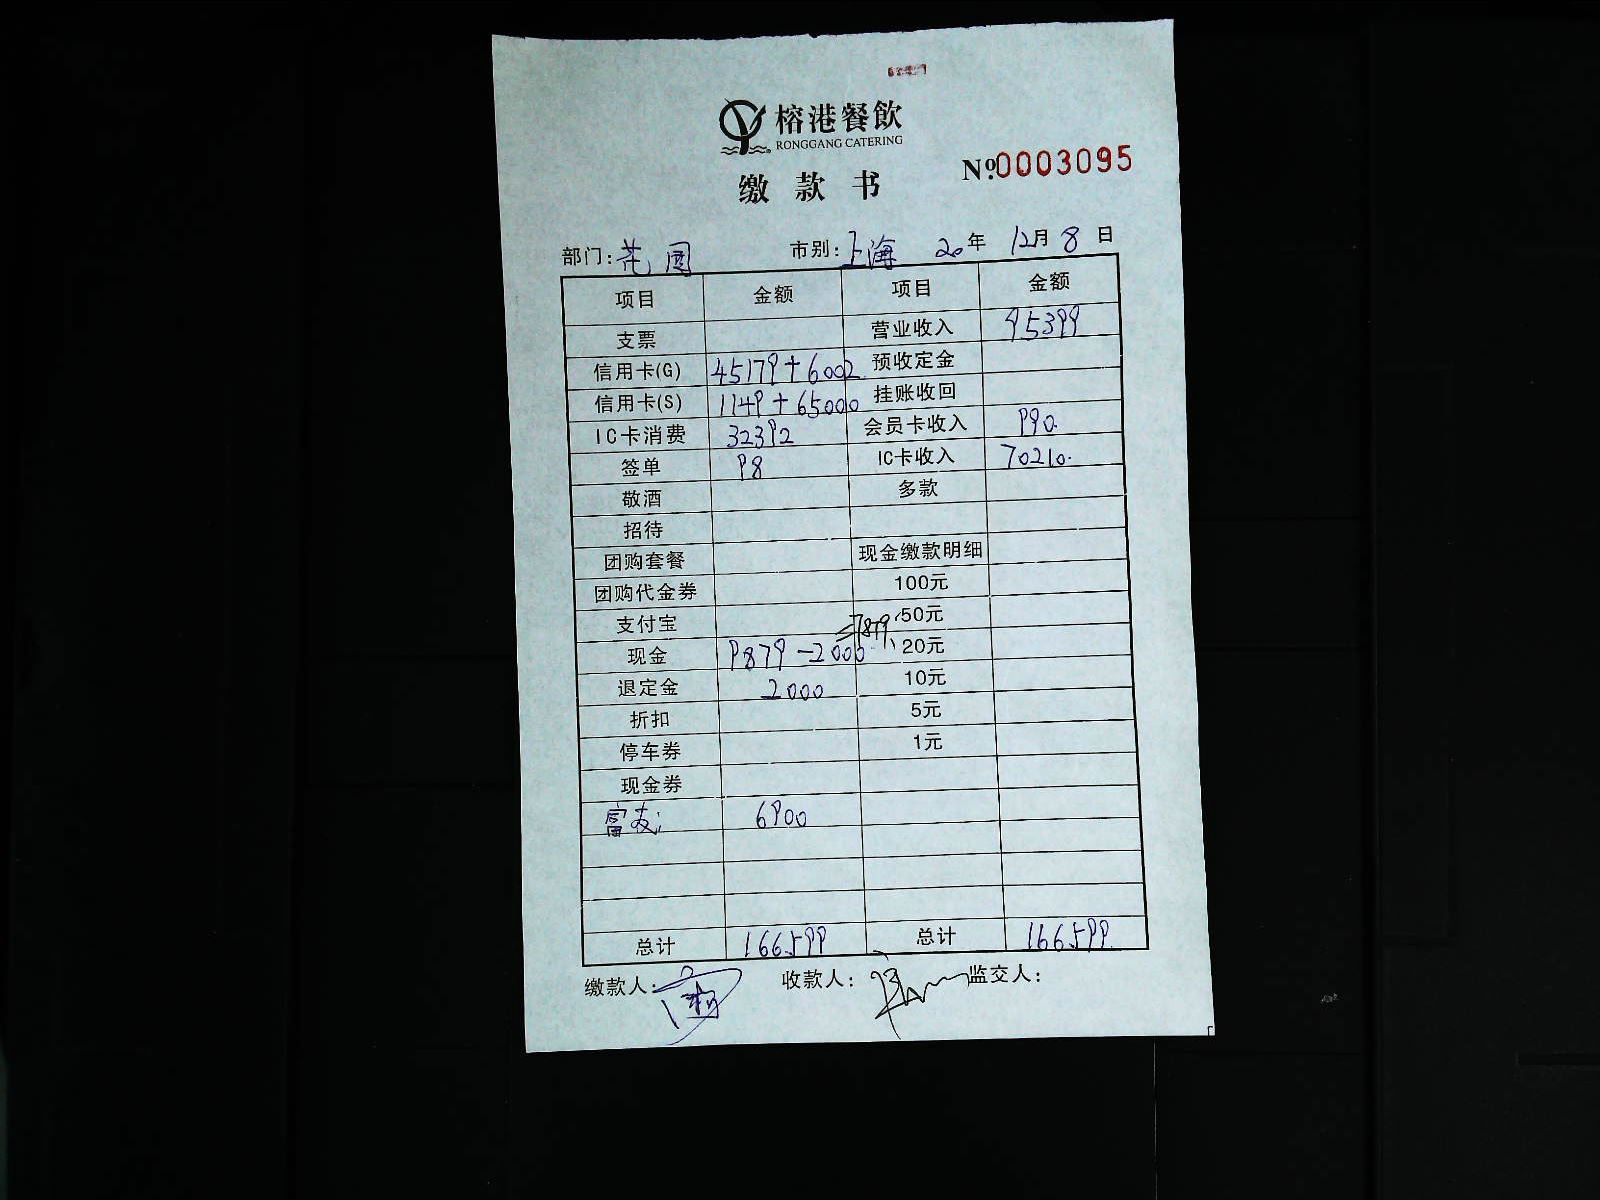 榕港餐飲
RONGGANG CATERING
缴款书
Nº.0003095
部门: 花园 市别: 上海 20年 12月 8日
项目 金额 项目 金额
支票 营业收入 95399
信用卡(G) 45179+6002 预收定金
信用卡(S) 1149+65000 挂账收回
IC卡消费 32392 会员卡收入 990.
签单 98 IC卡收入 70210.
敬酒 多款
招待
团购套餐 现金缴款明细
团购代金券 100元
支付宝 50元
现金 9879-2000=7879 20元
退定金 2000 10元
折扣 5元
停车券 1元
现金券
富友 6900
总计 166599 总计 166599
缴款人: 收款人: 监交人: